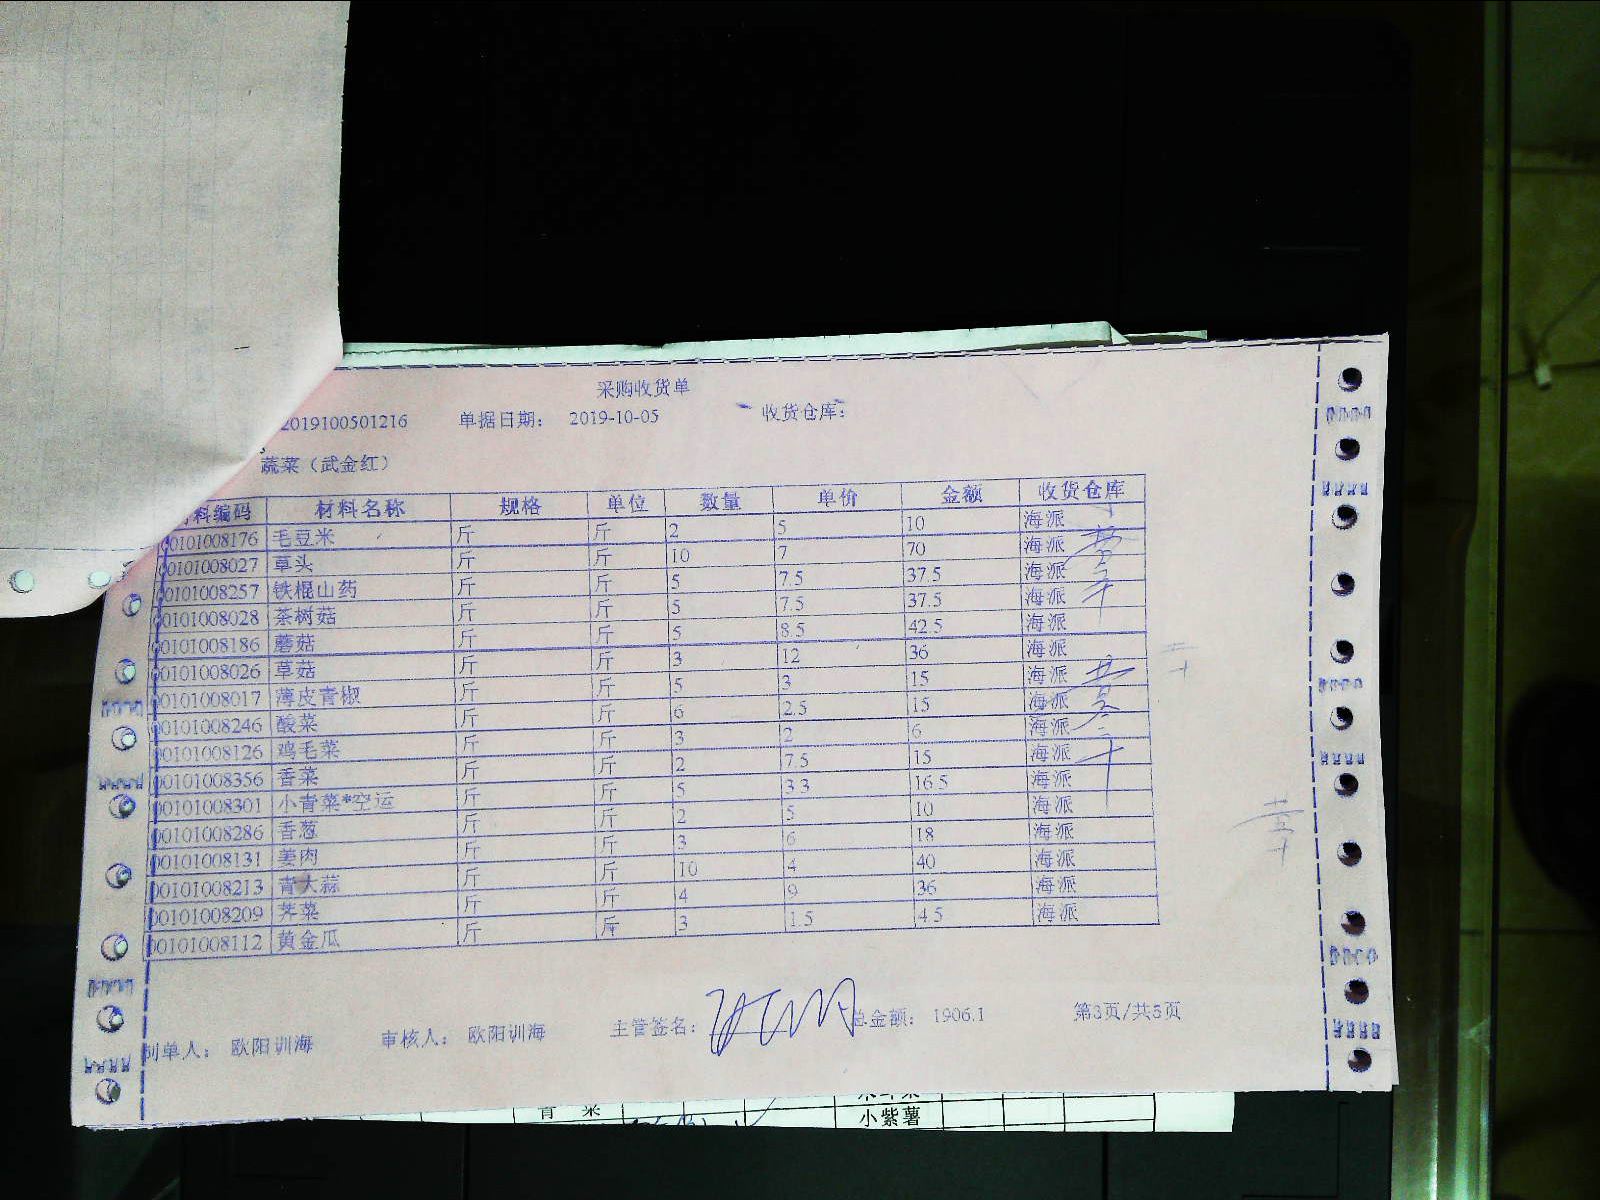 采购收货单
2019100501216 单据日期: 2019-10-05 收货仓库:
蔬菜（武金红）
料编码 材料名称 规格 单位 数量 单价 金额 收货仓库
00101008176 毛豆米 斤 斤 2 5 10 海派
00101008027 草头 斤 斤 10 7 70 海派
00101008257 铁棍山药 斤 斤 5 7.5 37.5 海派
00101008028 茶树菇 斤 斤 5 7.5 37.5 海派
00101008186 蘑菇 斤 斤 5 8.5 42.5 海派
00101008026 草菇 斤 斤 3 12 36 海派
00101008017 薄皮青椒 斤 斤 5 3 15 海派
00101008246 酸菜 斤 斤 6 2.5 15 海派
00101008126 鸡毛菜 斤 斤 3 2 6 海派
00101008356 香菜 斤 斤 2 7.5 15 海派
00101008301 小青菜*空运 斤 斤 5 3.3 16.5 海派
00101008286 香葱 斤 斤 2 5 10 海派
00101008131 姜肉 斤 斤 3 6 18 海派
00101008213 青大蒜 斤 斤 10 4 40 海派
00101008209 荠菜 斤 斤 4 9 36 海派
00101008112 黄金瓜 斤 斤 3 1.5 4.5 海派
制单人: 欧阳训海 审核人: 欧阳训海 主管签名: 总金额: 1906.1 第3页/共5页
青 菜
小紫薯